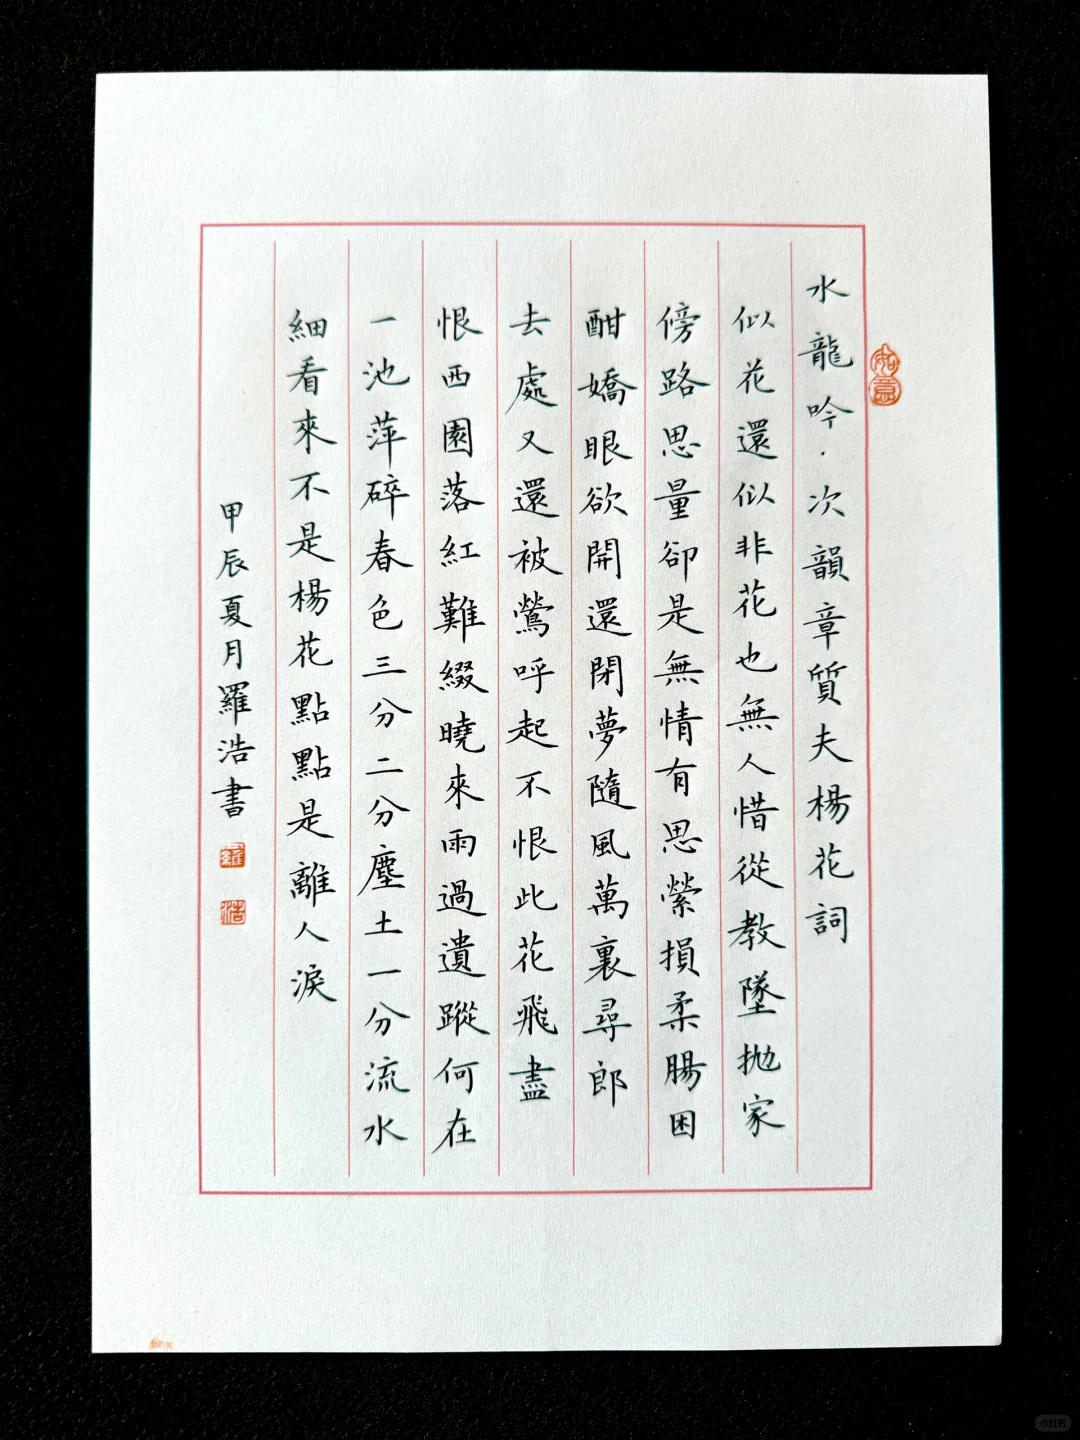 水龍吟·次韻章質夫楊花詞
似花還似非花也無人惜從教墜抛家
傍路思量卻是無情有思縈損柔腸困
酣嬌眼欲開還閉夢隨風萬裏尋郎
去處又還被鶯呼起不恨此花飛盡
恨西園落紅難綴曉來雨過遺蹤何在
一池萍碎春色三分二分塵土一分流水
細看來不是楊花點點是離人淚
甲辰夏月羅浩書
如意
羅
浩
小红书